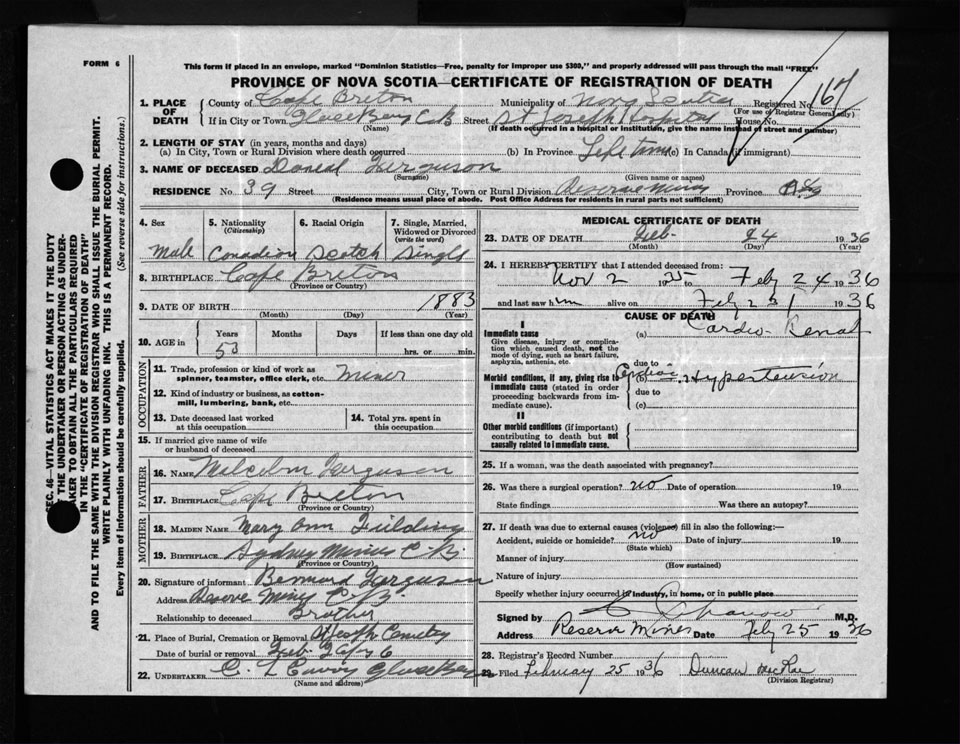 FORM 6
This form if placed in an envelope, marked "Dominion Statistics—Free, penalty for improper use $300," and properly addressed will pass through the mail "FREE"
PROVINCE OF NOVA SCOTIA—CERTIFICATE OF REGISTRATION OF DEATH
167
1. PLACE OF DEATH
County of Cape Breton Municipality of Nova Scotia Registered No.
(For use of Registrar General only)
If in City or Town Glace Bay C.B. Street St Joseph Hospital House No.
(Name) (If death occurred in a hospital or institution, give the name instead of street and number)
2. LENGTH OF STAY (in years, months and days)
(a) In City, Town or Rural Division where death occurred (b) In Province Life time (c) In Canada (if immigrant)
3. NAME OF DECEASED Daniel Ferguson
(Surname) (Given name or names)
RESIDENCE No. 39 Street City, Town or Rural Division Reserve Mines Province
(Residence means usual place of abode. Post Office Address for residents in rural parts not sufficient)
4. Sex 5. Nationality (Citizenship) 6. Racial Origin 7. Single, Married, Widowed or Divorced (write the word)
Male Canadian Scotch Single
8. BIRTHPLACE Cape Breton
(Province or Country)
9. DATE OF BIRTH 1883
(Month) (Day) (Year)
10. AGE in Years Months Days If less than one day old
53 hrs. or min.
OCCUPATION
11. Trade, profession or kind of work as spinner, teamster, office clerk, etc. Miner
12. Kind of industry or business, as cotton-mill, lumbering, bank, etc.
13. Date deceased last worked at this occupation
14. Total yrs. spent in this occupation
15. If married give name of wife or husband of deceased
FATHER
16. NAME Malcolm Ferguson
17. BIRTHPLACE Cape Breton
(Province or Country)
MOTHER
18. MAIDEN NAME Mary Ann Fielding
19. BIRTHPLACE Sydney Mines C.B.
(Province or Country)
20. Signature of informant Bernard Ferguson
Address Reserve Mines C.B.
Relationship to deceased Brother
21. Place of Burial, Cremation or Removal St Joseph Cemetery
Date of burial or removal Feb.
22. UNDERTAKER Glace Bay
(Name and address)
MEDICAL CERTIFICATE OF DEATH
23. DATE OF DEATH Feb- 24 1936
(Month) (Day) (Year)
24. I HEREBY CERTIFY that I attended deceased from:
Nov 2 1935 to Feb 24 1936
and last saw him alive on Feb 1936
CAUSE OF DEATH
I
Immediate cause (a) Cardio-Renal
Give disease, injury or complication which caused death, not the mode of dying, such as heart failure, asphyxia, asthenia, etc.
due to
Morbid conditions, if any, giving rise to immediate cause (stated in order proceeding backwards from immediate cause).
(b) Hypertension
due to
(c)
II
Other morbid conditions (if important) contributing to death but not causally related to immediate cause.
25. If a woman, was the death associated with pregnancy?
26. Was there a surgical operation? no Date of operation 19
State findings Was there an autopsy?
27. If death was due to external causes (violence) fill in also the following:—
Accident, suicide or homicide? no Date of injury 19
(State which)
Manner of injury
(How sustained)
Nature of injury
Specify whether injury occurred in industry, in home, or in public place
Signed by M.D.
Address Reserve Mines Date Feb 25 1936
28. Registrar's Record Number
29. Filed February 25 1936 Duncan McRae
(Division Registrar)
SEC. 46—VITAL STATISTICS ACT MAKES IT THE DUTY OF THE UNDERTAKER OR PERSON ACTING AS UNDERTAKER TO OBTAIN ALL THE PARTICULARS REQUIRED IN THE "CERTIFICATE OF REGISTRATION OF DEATH"
AND TO FILE THE SAME WITH THE DIVISION REGISTRAR WHO SHALL ISSUE THE BURIAL PERMIT.
WRITE PLAINLY WITH UNFADING INK. THIS IS A PERMANENT RECORD.
Every item of information should be carefully supplied. (See reverse side for instructions.)